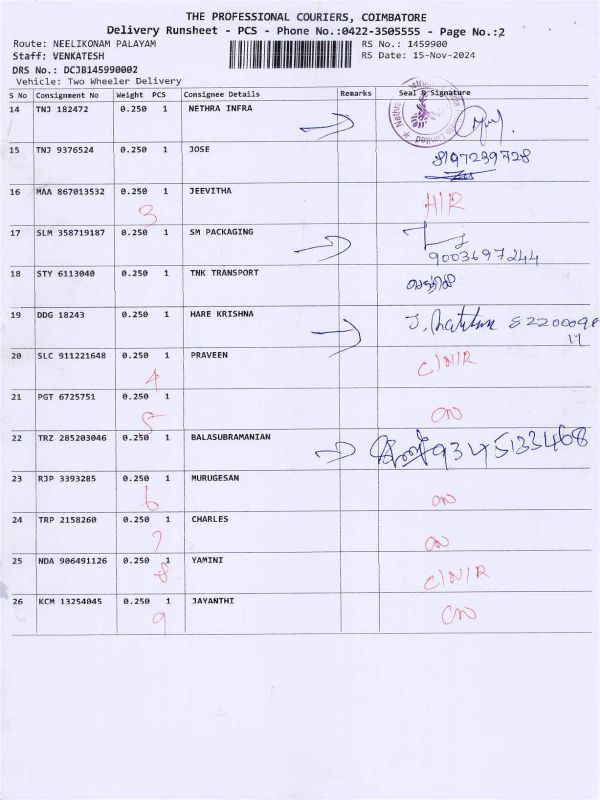 THE PROFESSIONAL COURIERS, COIMBATORE
Delivery Runsheet - PCS - Phone No.:0422-3505555 - Page No.:2
Route: NEELIKONAM PALAYAM RS No.: 1459900
Staff: VENKATESH RS Date: 15-Nov-2024
DRS No.: DCJB145990002
Vehicle: Two Wheeler Delivery
S No Consignment No Weight PCS Consignee Details Remarks Seal & Signature
14 TNJ 182472 0.250 1 NETHRA INFRA
15 TNJ 9376524 0.250 1 JOSE 8197239728
16 MAA 867013532 0.250 1 JEEVITHA H/R
3
17 SLM 358719187 0.250 1 SM PACKAGING
9003697244
18 STY 6113040 0.250 1 TNK TRANSPORT
19 DDG 18243 0.250 1 HARE KRISHNA
20 SLC 911221648 0.250 1 PRAVEEN C/N/R
4
21 PGT 6725751 0.250 1
5
22 TRZ 285203046 0.250 1 BALASUBRAMANIAN 9345133468
23 RJP 3393285 0.250 1 MURUGESAN
6
24 TRP 2158260 0.250 1 CHARLES
7
25 NDA 906491126 0.250 1 YAMINI C/N/R
8
26 KCM 13254045 0.250 1 JAYANTHI
9